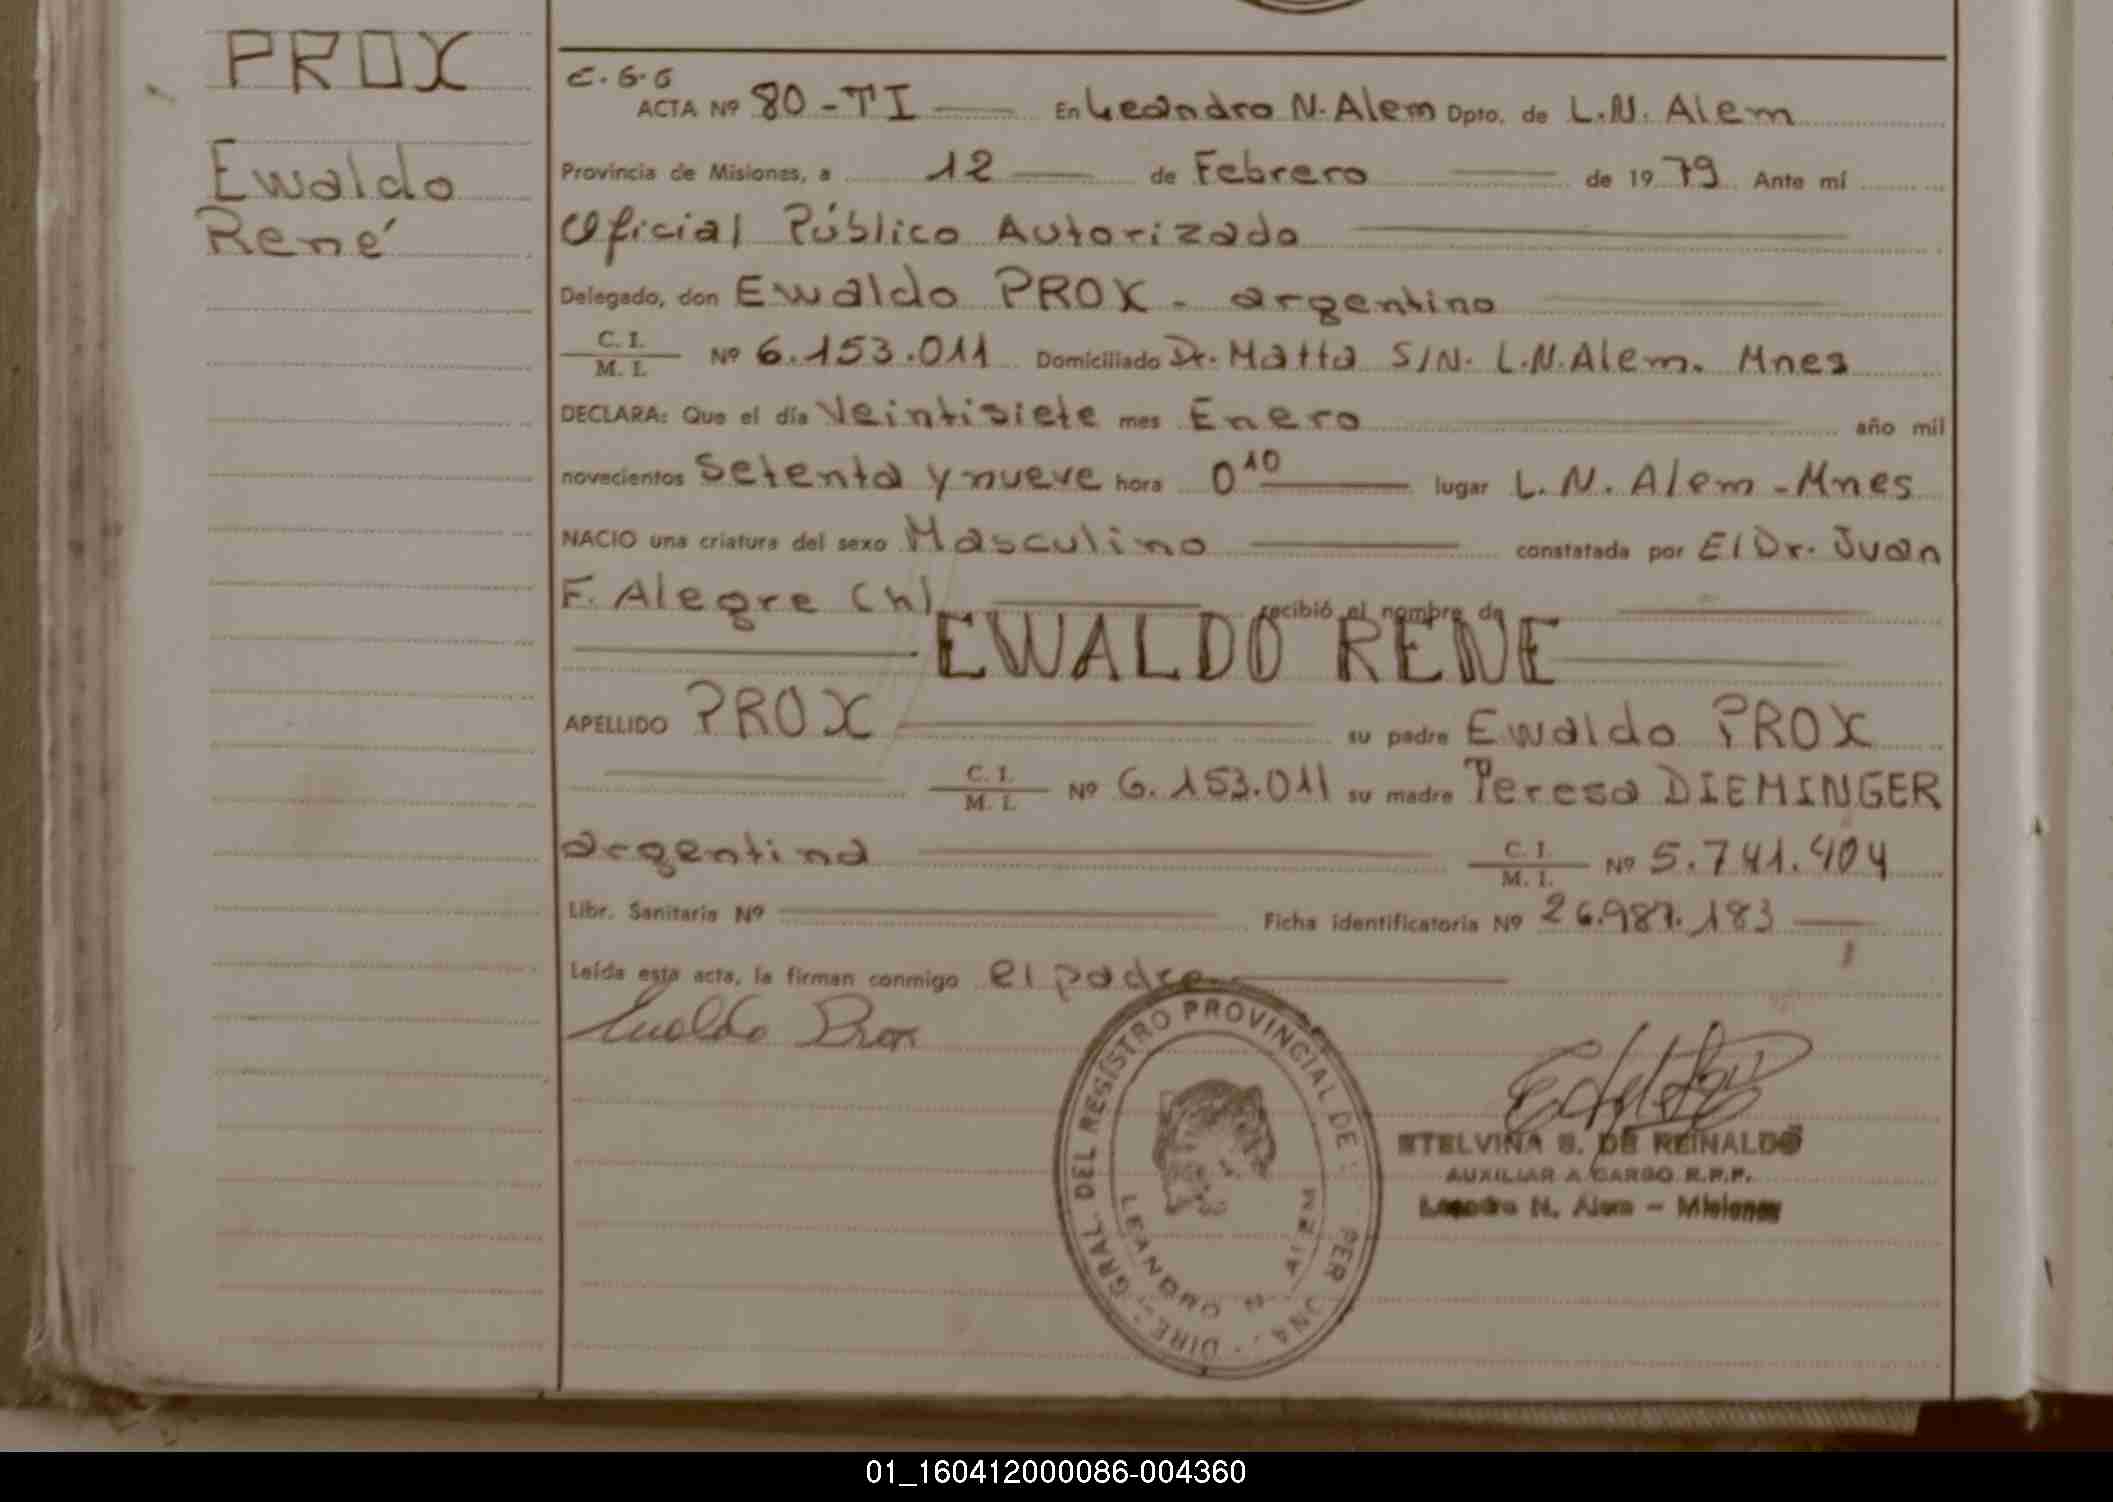 PROX
Ewaldo
René
E.G.G
ACTA Nº 80-TI En Leandro N. Alem Dpto. de L.N. Alem
Provincia de Misiones, a 12 de Febrero de 1979 Ante mí
Oficial Público Autorizado
Delegado, don Ewaldo PROX - argentino
C. I.
M. I. Nº 6.153.011 Domiciliado Dr. Matta S/N. L.N.Alem. Mnes
DECLARA: Que el día Veintisiete mes Enero año mil
novecientos Setenta y nueve hora 0 10 lugar L. N. Alem - Mnes
NACIO una criatura del sexo Masculino constatada por El Dr. Juan
F. Alegre Ch) recibió el nombre de
EWALDO RENE
APELLIDO PROX su padre Ewaldo PROX
C. I.
M. I. Nº 6.153.011 su madre Teresa DIEMINGER
argentina C. I.
M. I. Nº 5.741.404
Libr. Sanitaria Nº Ficha identificatoria Nº 26.987.183
Leída esta acta, la firman conmigo el padre
Ewaldo Prox
DIRE. GRAL. DEL REGISTRO PROVINCIAL DE PER
LEANDRO N ALEM
ETELVINA S. DE REINALDO
AUXILIAR A CARGO R.P.P.
Leandro N. Alem - Misiones
01_160412000086-004360